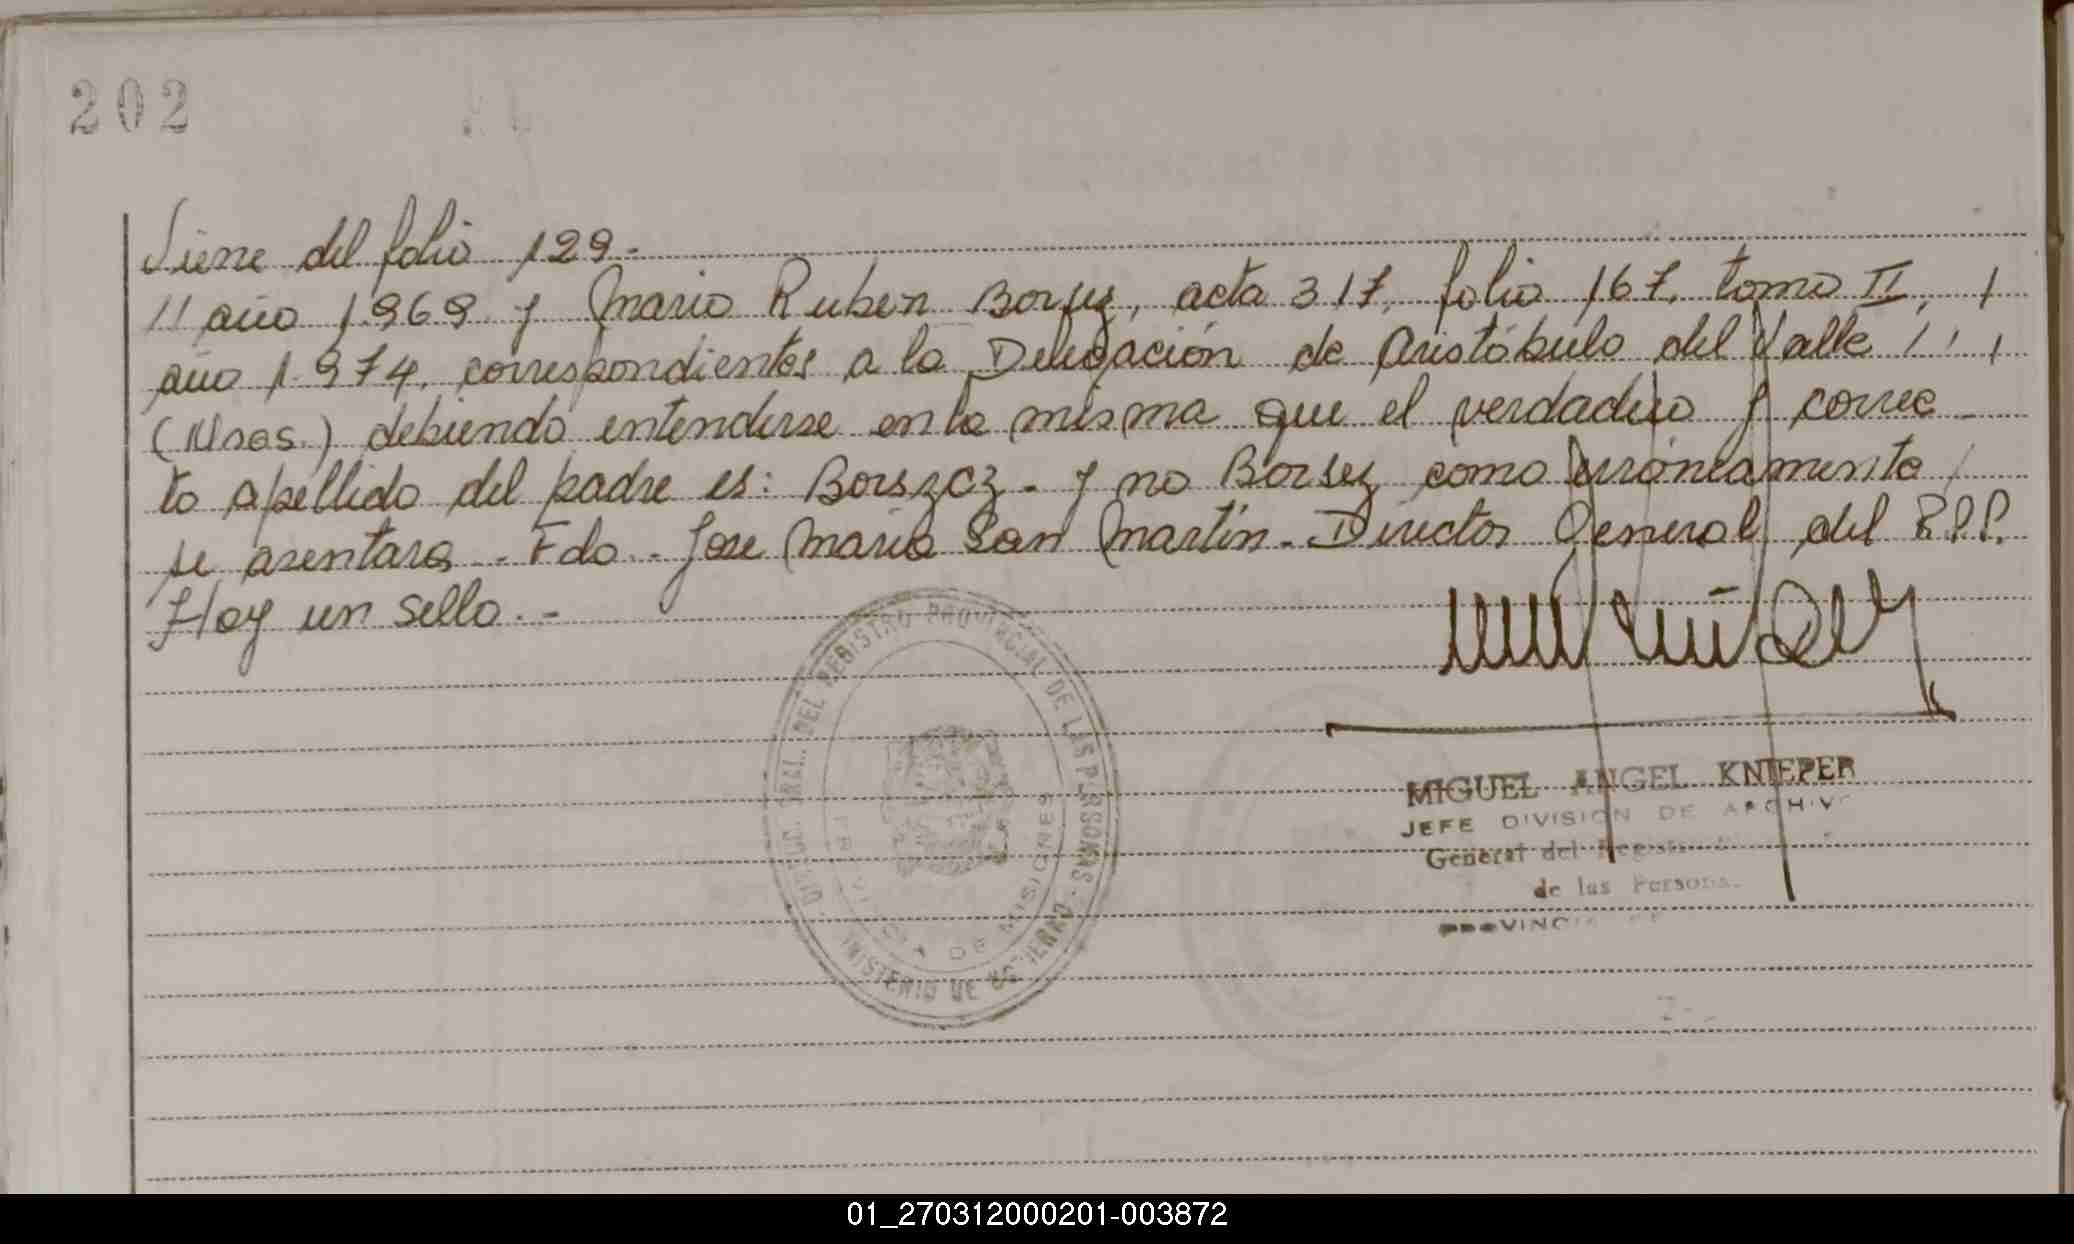 202
Viene del folio 129.-
// año 1.969 y Mario Ruben Borsez, acta 317, folio 167, tomo II, /
año 1.974, correspondientes a la Delegación de Aristóbulo del Valle ///
(Mnes.) debiendo entenderse en la misma que el verdadero y correc-
to apellido del padre es: Borszcz.- y no Borsez como erróneamente /
se asentara.- Fdo.- Jose Maria San Martín.- Director General del R.P.P.
Hay un sello.-
DIRECC. GRAL. DEL REGISTRO PROVINCIAL DE LAS PERSONAS
MINISTERIO DE GOBIERNO
PROVINCIA DE MISIONES
MIGUEL ANGEL KNIEPER
JEFE DIVISION DE ARCHIVO
General del Registro
de las Persona
PROVINCIA
01_270312000201-003872